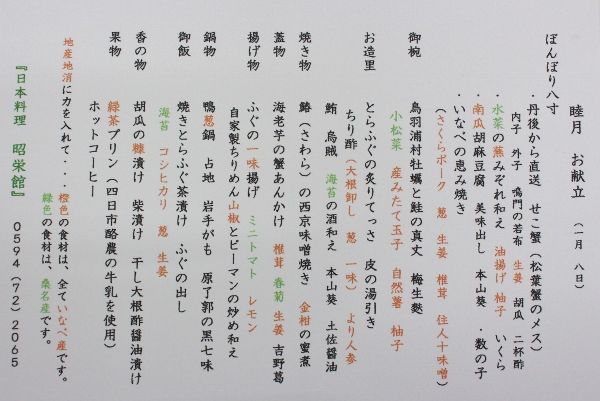 睦月　お献立　（一月　八日）
ぼんぼり八寸
・丹後から直送　せこ蟹（松葉蟹のメス）
内子　外子　鳴門の若布　生姜　胡瓜　二杯酢
・水菜の蕪みぞれ和え　油揚げ　柚子　いくら
・南瓜胡麻豆腐　美味出し　本山葵　・数の子
・いなべの恵み焼き
（さくらポーク　葱　生姜　椎茸　住人十味噌）
御椀　鳥羽浦村牡蠣と鮭の真丈　梅生麩
小松菜　産みたて玉子　自然薯　柚子
お造里　とらふぐの炙りてっさ　皮の湯引き
ちり酢（大根卸し　葱　一味）より人参
鮪　烏賊　海苔の酒和え　本山葵　土佐醤油
焼き物　鰆（さわら）の西京味噌焼き　金柑の蜜煮
蓋物　海老芋の蟹あんかけ　椎茸　春菊　生姜　吉野葛
揚げ物　ふぐの一味揚げ　ミニトマト　レモン
自家製ちりめん山椒とピーマンの炒め和え
鍋物　鴨葱鍋　占地　岩手がも　原了郭の黒七味
御飯　焼きとらふぐ茶漬け　ふぐの出し
海苔　コシヒカリ　葱　生姜
香の物　胡瓜の糠漬け　柴漬け　干し大根酢醤油漬け
果物　緑茶プリン（四日市酪農の牛乳を使用）
ホットコーヒー
地産地消に力を入れて・・・橙色の食材は、全ていなべ産です。
緑色の食材は、桑名産です。
『日本料理　昭栄館』　０５９４（７２）２０６５